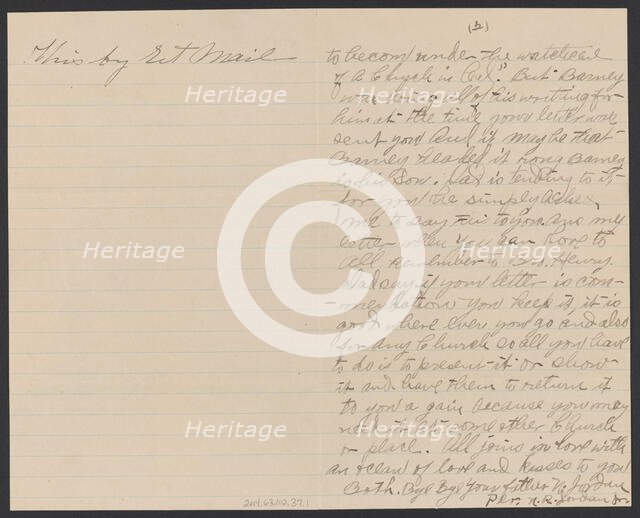 This by Ret Mail
(2)
to becom under the watchcare
of A Church in Cal." But Barney
was doing all of his writing for
him at the time your letter was
sent you And it may be that
Barney headed it rong Barney
is his Son. Dad is tending to it
for you he simply
me to say to you Ans my
letter when you can Love to
All remember to Bro. Henry.
Dad say if your letter is com-
-mendation you keep it, it is
good where ever you go and also
for Any Church so all you have
to do is to present it or show
it and have them to return it
to you a gain because you may
need it at some other Church
or place. All joins in love with
an ocean of love and kisses to you
Both. Bye Bye Your father N. Jordan
Per. N. R. Jordan Jr
2014.63.102.37.1
Heritage
Heritage
Heritage
Heritage
Heritage
Heritage
Heritage
Heritage
C